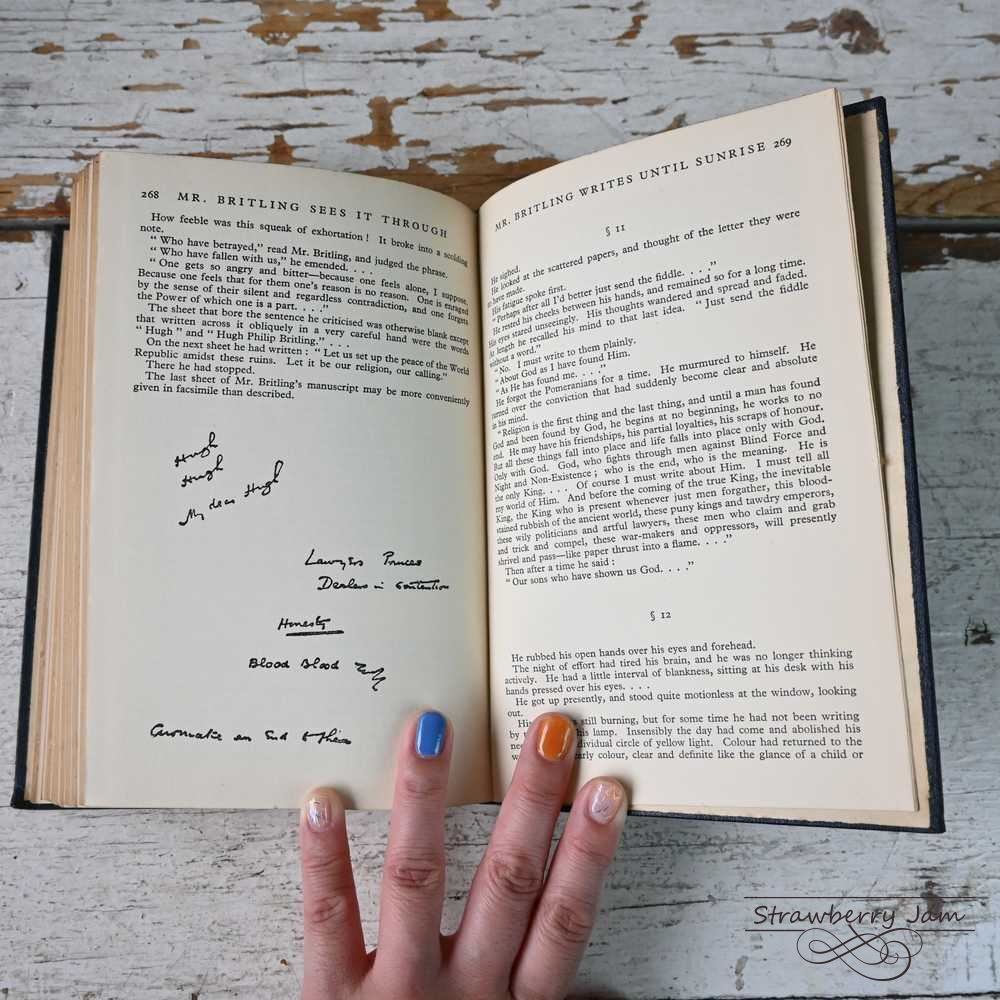 268 MR. BRITLING SEES IT THROUGH
How feeble was this squeak of exhortation! It broke into a scolding
note.
“Who have betrayed,” read Mr. Britling, and judged the phrase.
“Who have fallen with us,” he emended. . . .
“One gets so angry and bitter—because one feels alone, I suppose.
Because one feels that for them one's reason is no reason. One is enraged
by the sense of their silent and regardless contradiction, and one forgets
the Power of which one is a part. . . .”
The sheet that bore the sentence he criticised was otherwise blank except
that written across it obliquely in a very careful hand were the words
“Hugh” and “Hugh Philip Britling.” . . .
On the next sheet he had written: “Let us set up the peace of the World
Republic amidst these ruins. Let it be our religion, our calling.”
There he had stopped.
The last sheet of Mr. Britling's manuscript may be more conveniently
given in facsimile than described.
Hugh
Hugh
My dear Hugh
Lawyers Princes
Dealers in Contention
Honesty
Blood Blood
an End to
MR. BRITLING WRITES UNTIL SUNRISE 269
§ 11
He sighed.
He looked at the scattered papers, and thought of the letter they were
to have made.
His fatigue spoke first.
“Perhaps after all I'd better just send the fiddle. . . .”
He rested his cheeks between his hands, and remained so for a long time.
His eyes stared unseeingly. His thoughts wandered and spread and faded.
At length he recalled his mind to that last idea. “Just send the fiddle
without a word.”
“No. I must write to them plainly.
“About God as I have found Him.
“As He has found me. . . .”
He forgot the Pomeranians for a time. He murmured to himself. He
turned over the conviction that had suddenly become clear and absolute
in his mind.
“Religion is the first thing and the last thing, and until a man has found
God and been found by God, he begins at no beginning, he works to no
end. He may have his friendships, his partial loyalties, his scraps of honour.
But all these things fall into place and life falls into place only with God.
Only with God. God, who fights through men against Blind Force and
Night and Non-Existence; who is the end, who is the meaning. He is
the only King. . . . Of course I must write about Him. I must tell all
my world of Him. And before the coming of the true King, the inevitable
King, the King who is present whenever just men forgather, this blood-
stained rubbish of the ancient world, these puny kings and tawdry emperors,
these wily politicians and artful lawyers, these men who claim and grab
and trick and compel, these war-makers and oppressors, will presently
shrivel and pass—like paper thrust into a flame. . . .”
Then after a time he said:
“Our sons who have shown us God. . . .”
§ 12
He rubbed his open hands over his eyes and forehead.
The night of effort had tired his brain, and he was no longer thinking
actively. He had a little interval of blankness, sitting at his desk with his
hands pressed over his eyes. . . .
He got up presently, and stood quite motionless at the window, looking
out.
His still burning, but for some time he had not been writing
by his lamp. Insensibly the day had come and abolished his
individual circle of yellow light. Colour had returned to the
early colour, clear and definite like the glance of a child or
Strawberry Jam